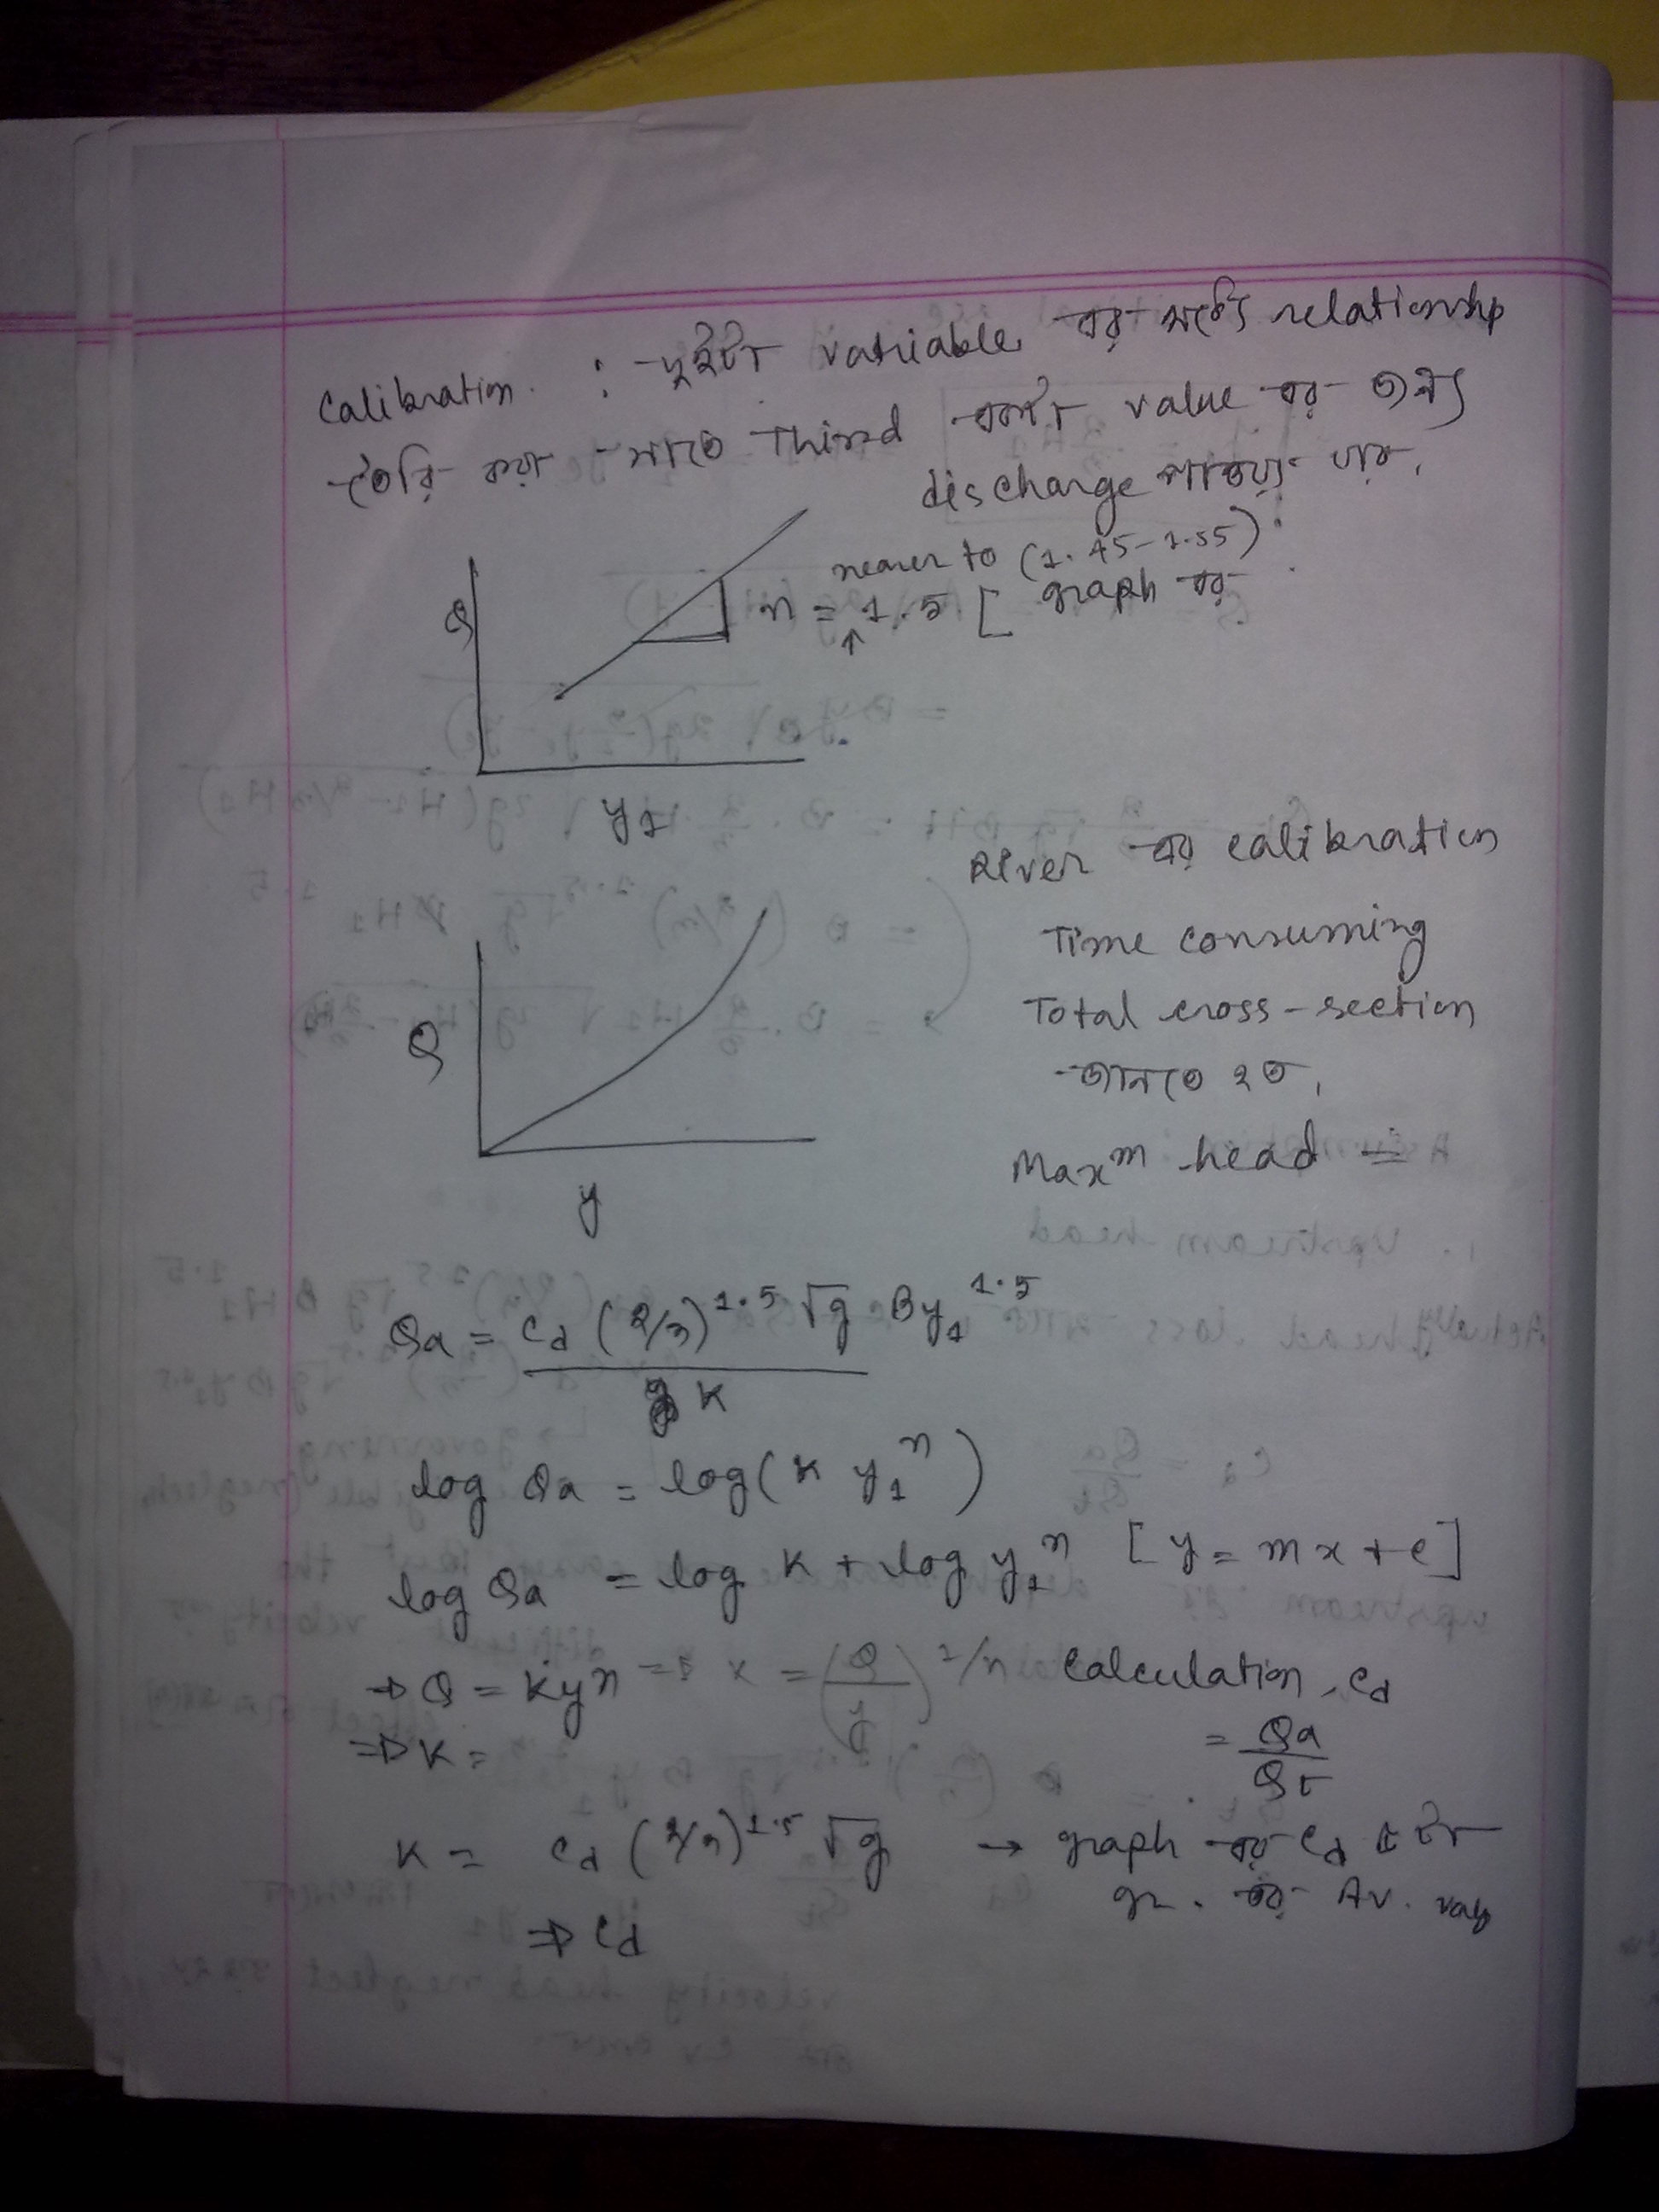 Calibration. : দুইটা variable এর মধ্যে relationship
তৈরি করা যাতে Third একটা value এর জন্য
discharge পাওয়া যায়।
nearer to (1.45-1.55)
n = 1.5 [ graph এর
↑
Q
y1
River এর calibration
Time consuming
Total cross-section
জানতে হত।
Maxm head =
Q
y
Qa = Cd (2/3)^1.5 √g By1^1.5
K
log Qa = log(K y1^n)
log Qa = log K + log y1^n [y = mx + c]
⇒ Q = Ky^n ⇒ x = (Q/y)^1/n Calculation, Cd
⇒ K = = Qa/Qt
K = Cd (2/3)^1.5 √g → graph এর Cd
gr. এর Av.
⇒ Cd